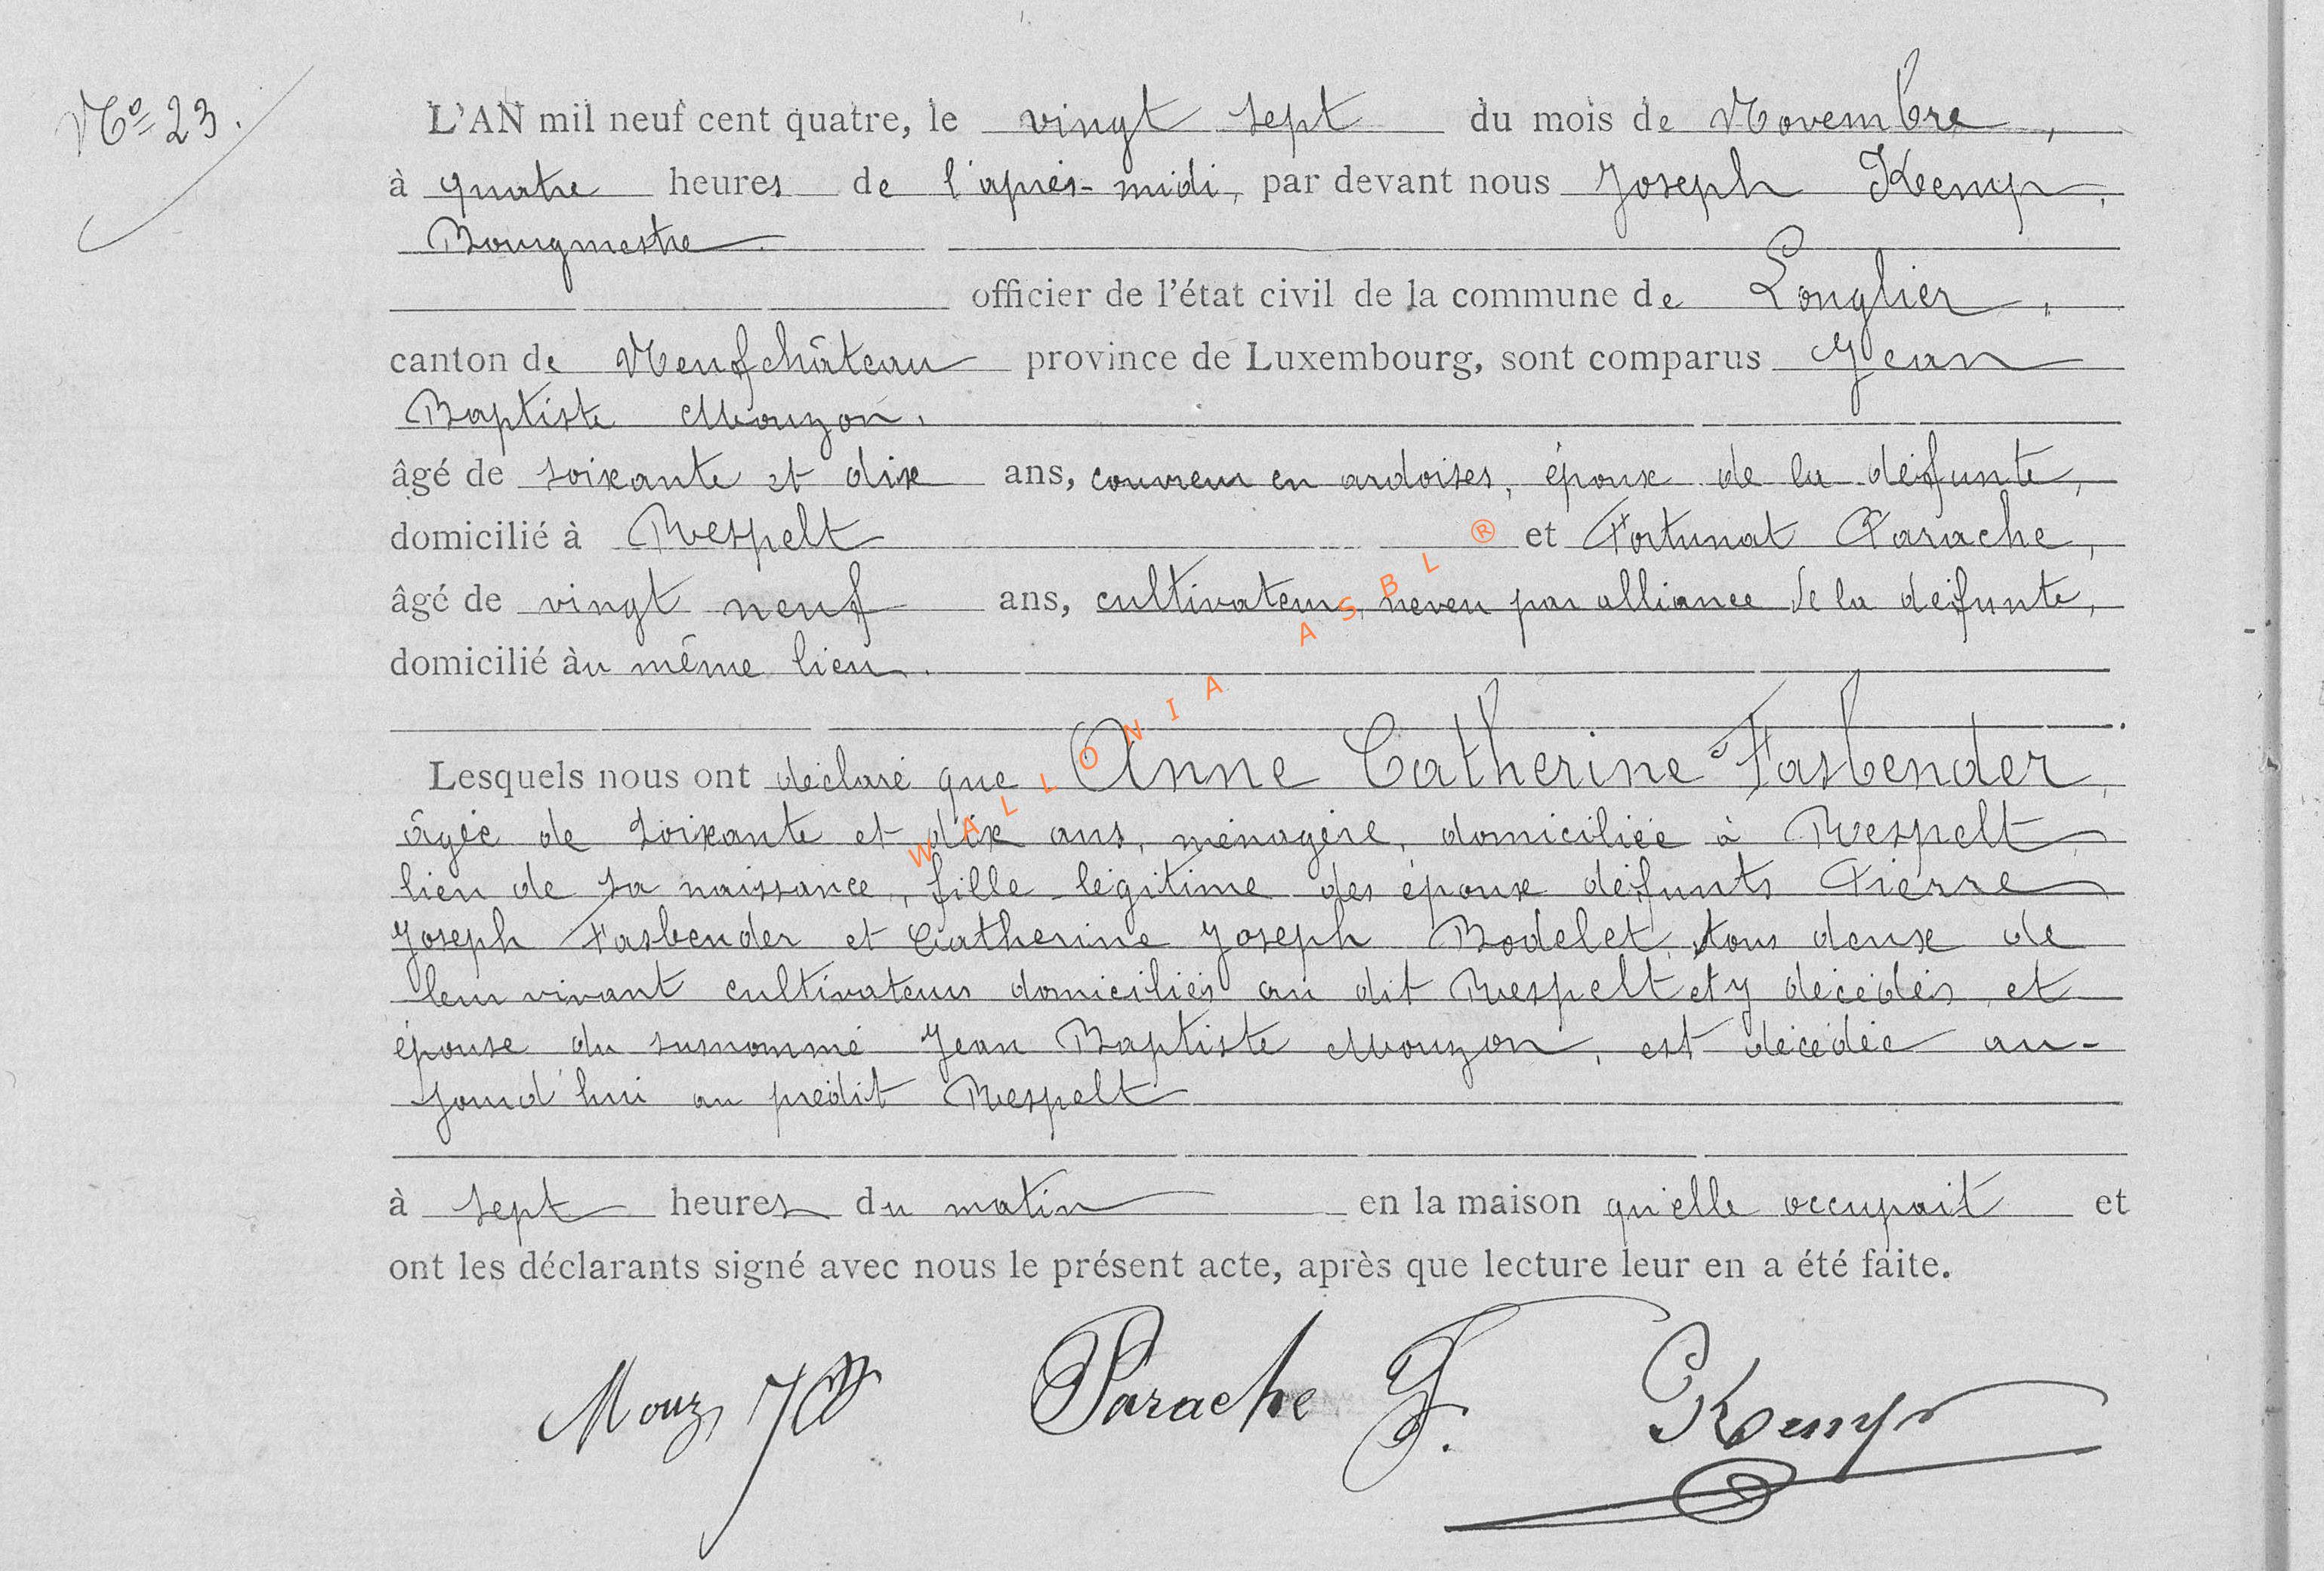 Nº 23.
L'AN mil neuf cent quatre, le vingt sept du mois de Novembre,
à quatre heures de l'après-midi, par devant nous Joseph Kemp,
Bourgmestre
officier de l'état civil de la commune de Longlier,
canton de Neufchâteau province de Luxembourg, sont comparus Jean
Baptiste Mouzon,
âgé de soixante et dix ans, couvreur en ardoises, époux de la défunte,
domicilié à Respelt et Fortunat Parache,
âgé de vingt neuf ans, cultivateur, neveu par alliance de la défunte,
domicilié au même lieu.
Lesquels nous ont déclaré que Anne Catherine Fasbender,
âgée de soixante et dix ans, ménagère, domiciliée à Respelt
lieu de sa naissance, fille légitime des époux défunts Pierre
Joseph Fasbender et Catherine Joseph Bodelet, tous deux de
leur vivant cultivateurs domiciliés au dit Respelt et y décédés et
épouse du surnommé Jean Baptiste Mouzon, est décédée au-
jourd'hui au prédit Respelt
à sept heures du matin en la maison qu'elle occupait et
ont les déclarants signé avec nous le présent acte, après que lecture leur en a été faite.
Parache F. Kemp
WALLONIA ASBL ®